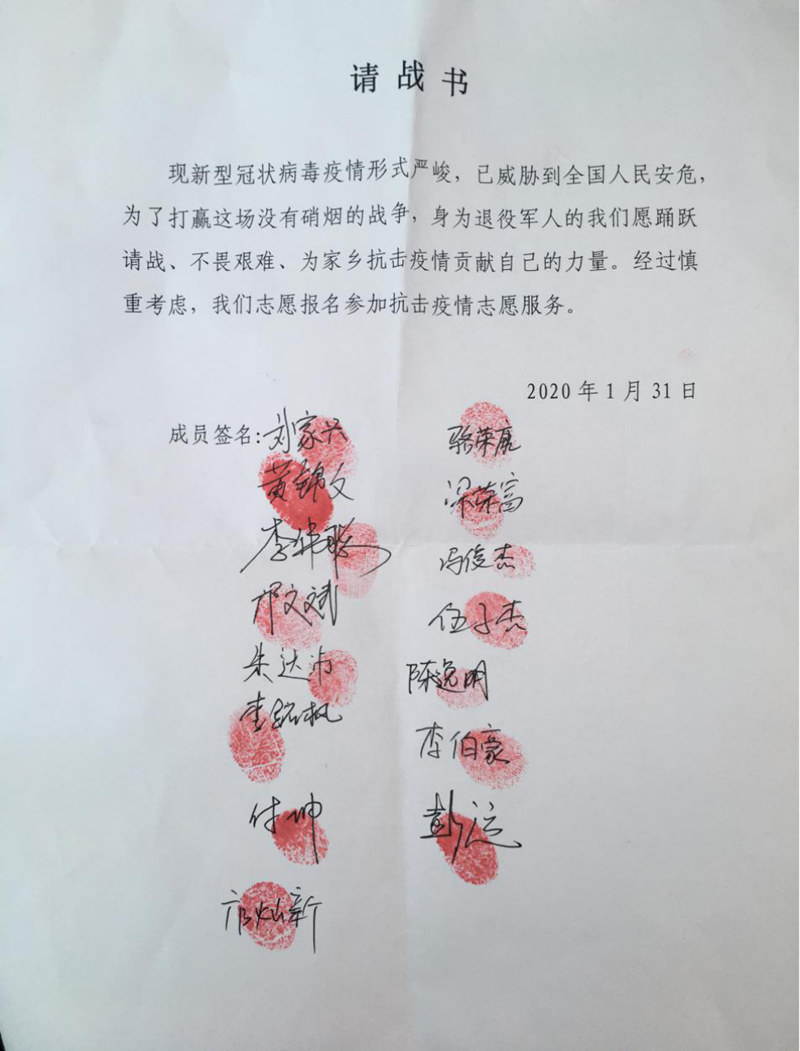 请战书
现新型冠状病毒疫情形式严峻，已威胁到全国人民安危，
为了打赢这场没有硝烟的战争，身为退役军人的我们愿踊跃
请战、不畏艰难、为家乡抗击疫情贡献自己的力量。经过慎
重考虑，我们志愿报名参加抗击疫情志愿服务。
2020年1月31日
成员签名：刘家兴
黄锦文
李伟聪
邝文斌
朱达沛
李
付坤
邝灿新
骆荣
梁荣富
冯俊杰
伍子杰
陈逸明
李伯豪
彭运